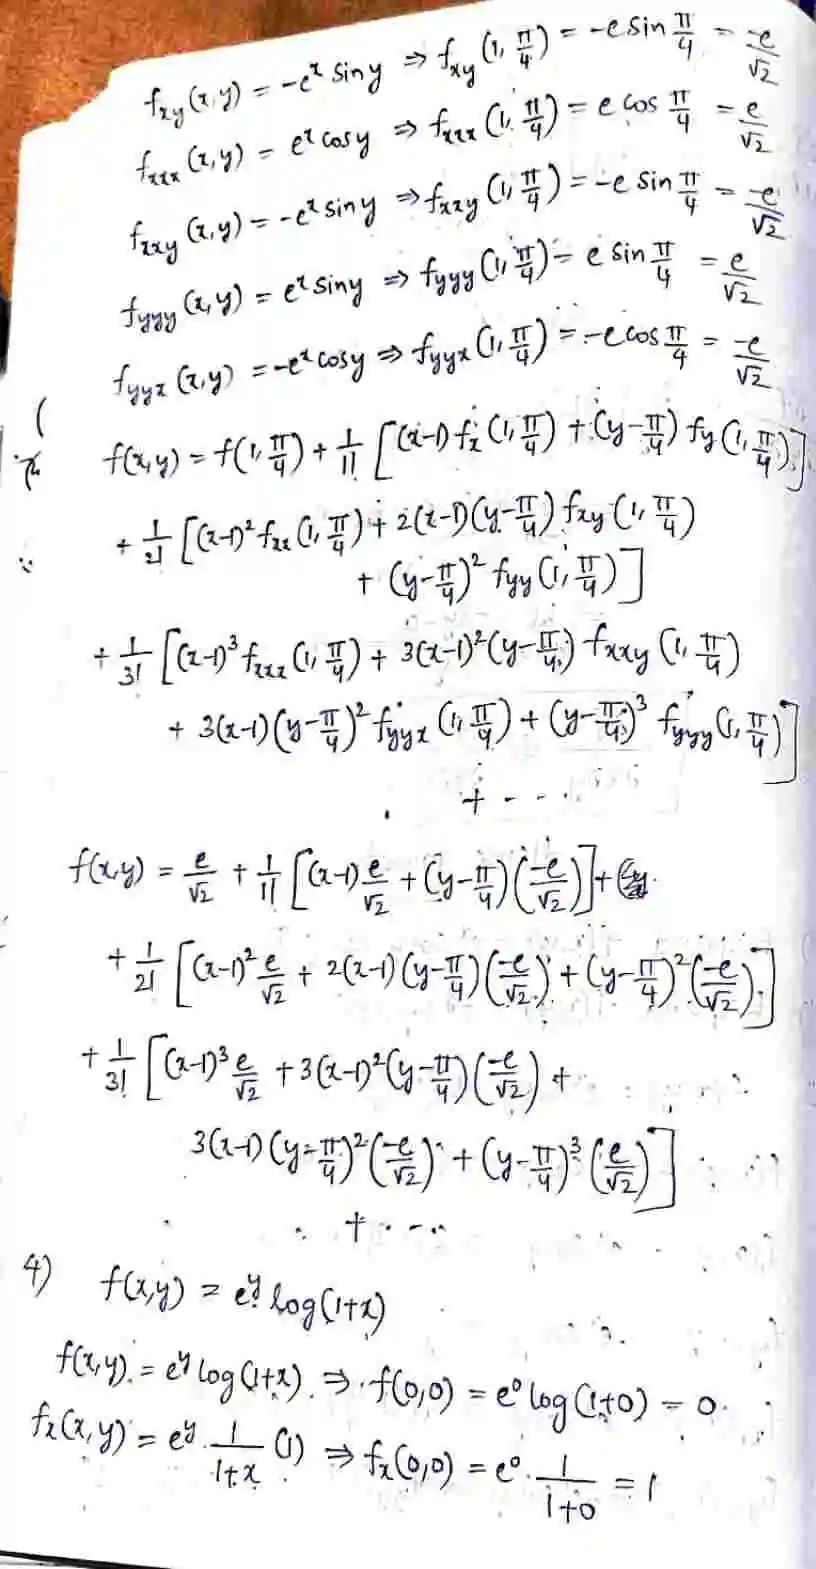 fxy(x,y) = -e^x siny ⇒ fxy(1, π/4) = -e sin π/4 = -e/√2
fxxx(x,y) = e^x cosy ⇒ fxxx(1, π/4) = e cos π/4 = e/√2
fxxy(x,y) = -e^x siny ⇒ fxxy(1, π/4) = -e sin π/4 = -e/√2
fyyy(x,y) = e^x siny ⇒ fyyy(1, π/4) = e sin π/4 = e/√2
fyyx(x,y) = -e^x cosy ⇒ fyyx(1, π/4) = -e cos π/4 = -e/√2
f(x,y) = f(1, π/4) + 1/1! [(x-1) fx(1, π/4) + (y-π/4) fy(1, π/4)]
+ 1/2! [(x-1)² fxx(1, π/4) + 2(x-1)(y-π/4) fxy(1, π/4)
+ (y-π/4)² fyy(1, π/4)]
+ 1/3! [(x-1)³ fxxx(1, π/4) + 3(x-1)²(y-π/4) fxxy(1, π/4)
+ 3(x-1)(y-π/4)² fyyx(1, π/4) + (y-π/4)³ fyyy(1, π/4)]
+ ...
f(x,y) = e/√2 + 1/1! [(x-1) e/√2 + (y-π/4)(-e/√2)] +
+ 1/2! [(x-1)² e/√2 + 2(x-1)(y-π/4)(-e/√2) + (y-π/4)²(-e/√2)]
+ 1/3! [(x-1)³ e/√2 + 3(x-1)²(y-π/4)(-e/√2) +
3(x-1)(y-π/4)²(-e/√2) + (y-π/4)³(e/√2)]
+ ...
4) f(x,y) = e^y log(1+x)
f(x,y) = e^y log(1+x) ⇒ f(0,0) = e⁰ log(1+0) = 0
fx(x,y) = e^y · 1/(1+x) (1) ⇒ fx(0,0) = e⁰ · 1/(1+0) = 1